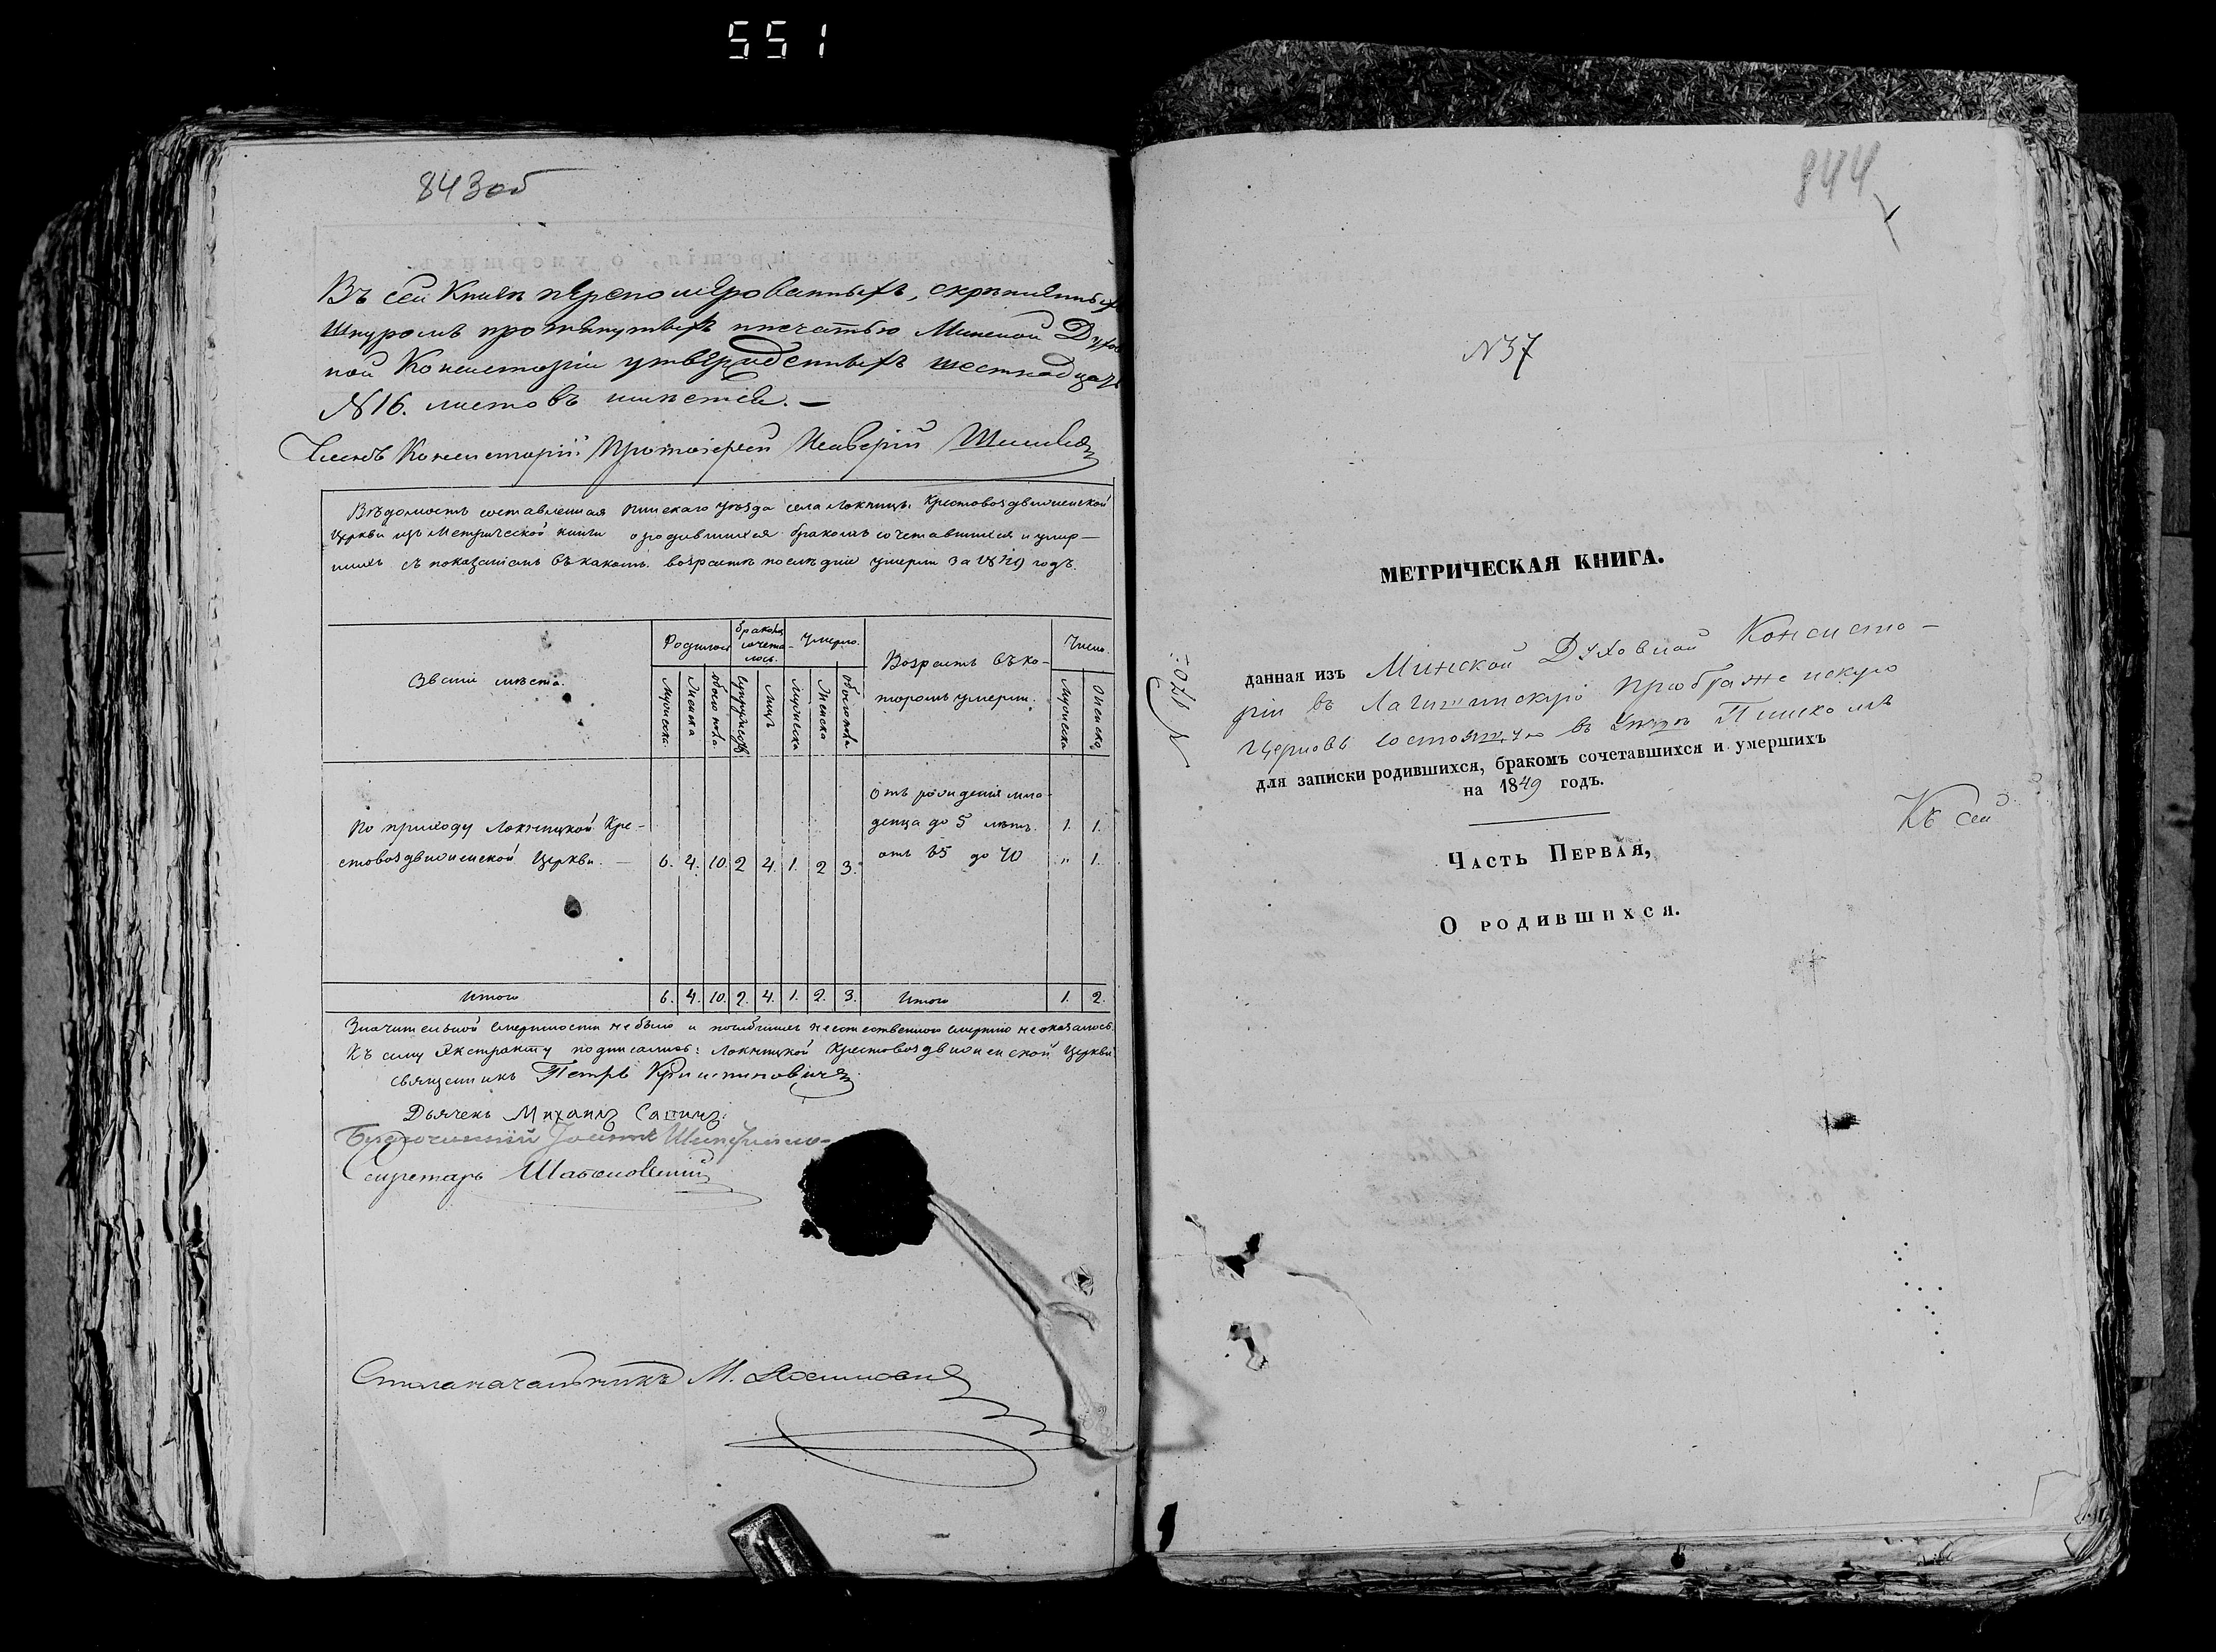 551
843об
Въ сей Книгѣ перенумерованныхъ, скрѣпленныхъ
Шнуромъ протянутыхъ и печатью Минской Духов
ной Консисторіи утвержденныхъ шестнадцать
№16. листовъ имѣется. —
Членъ Консисторіи Протоіерей
Вѣдомость составленная Пинскаго уѣзда села Локницъ Крестовоздвиженской
Церкви изъ Метрической книги о родившихся бракомъ сочетавшихся и умер-
шихъ съ показаніемъ въ какомъ возрастѣ послѣдніе умерли за 1849 годъ.
Званіе мѣста.
Родилось
бракомъ сочета лось.
Умерло.
Возрастъ въ ко-
торомъ умерли.
Число.
Мужеска
Женска
обоего пола
Супружествъ
Лицъ
Мужеска
Женска
обоего пола
Мужеска
Женска
По приходу Локницкой Кре-
стовоздвиженской Церкви. —
6. 4. 10. 2 4. 1. 2 3.
Отъ рожденія мла-
денца до 5 лѣтъ. 1. 1.
отъ 65 до 70 „ 1.
Итого 6. 4. 10. 2. 4. 1. 2. 3. Итого 1. 2.
Значительной смертности не было и погибшихъ неестественною смертію не оказалось.
Къ сему Экстракту подписались: Локницкой Крестовоздвиженской Церкви
священникъ Петръ
Дьячекъ Михаилъ
Благочинный Іоаннъ
Секретарь
Столоначальникъ М.
844
№37
МЕТРИЧЕСКАЯ КНИГА.
данная изъ Минской Духовной Консисто-
ріи въ Логишинскую Преображенскую
Церковь состоящую въ Уѣздѣ Пинскомъ
для записки родившихся, бракомъ сочетавшихся и умершихъ
на 1849 годъ.
Къ сей
Часть Первая,
О родившихся.